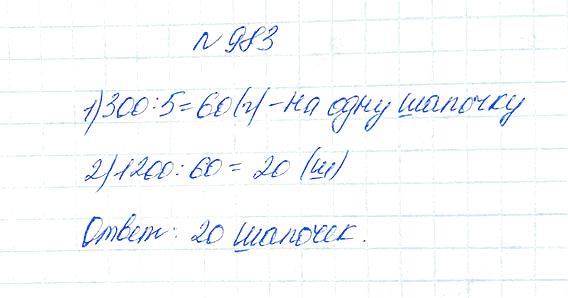 № 983
1) 300 : 5 = 60 (г) - на одну шапочку
2) 1200 : 60 = 20 (ш)
Ответ: 20 шапочек.